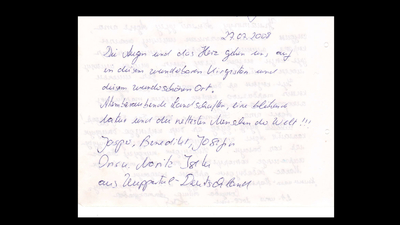 27.07.2008
Die Augen und das Herz gehen uns auf
in diesem wunderbaren und
diesem wunderschönen Ort.
Atemberaubende Landschaften, eine blühende
Natur und die nettesten Menschen der Welt!!!
Jasper, Benedikt, Josefin
Moritz
aus Wuppertal-Deutschland